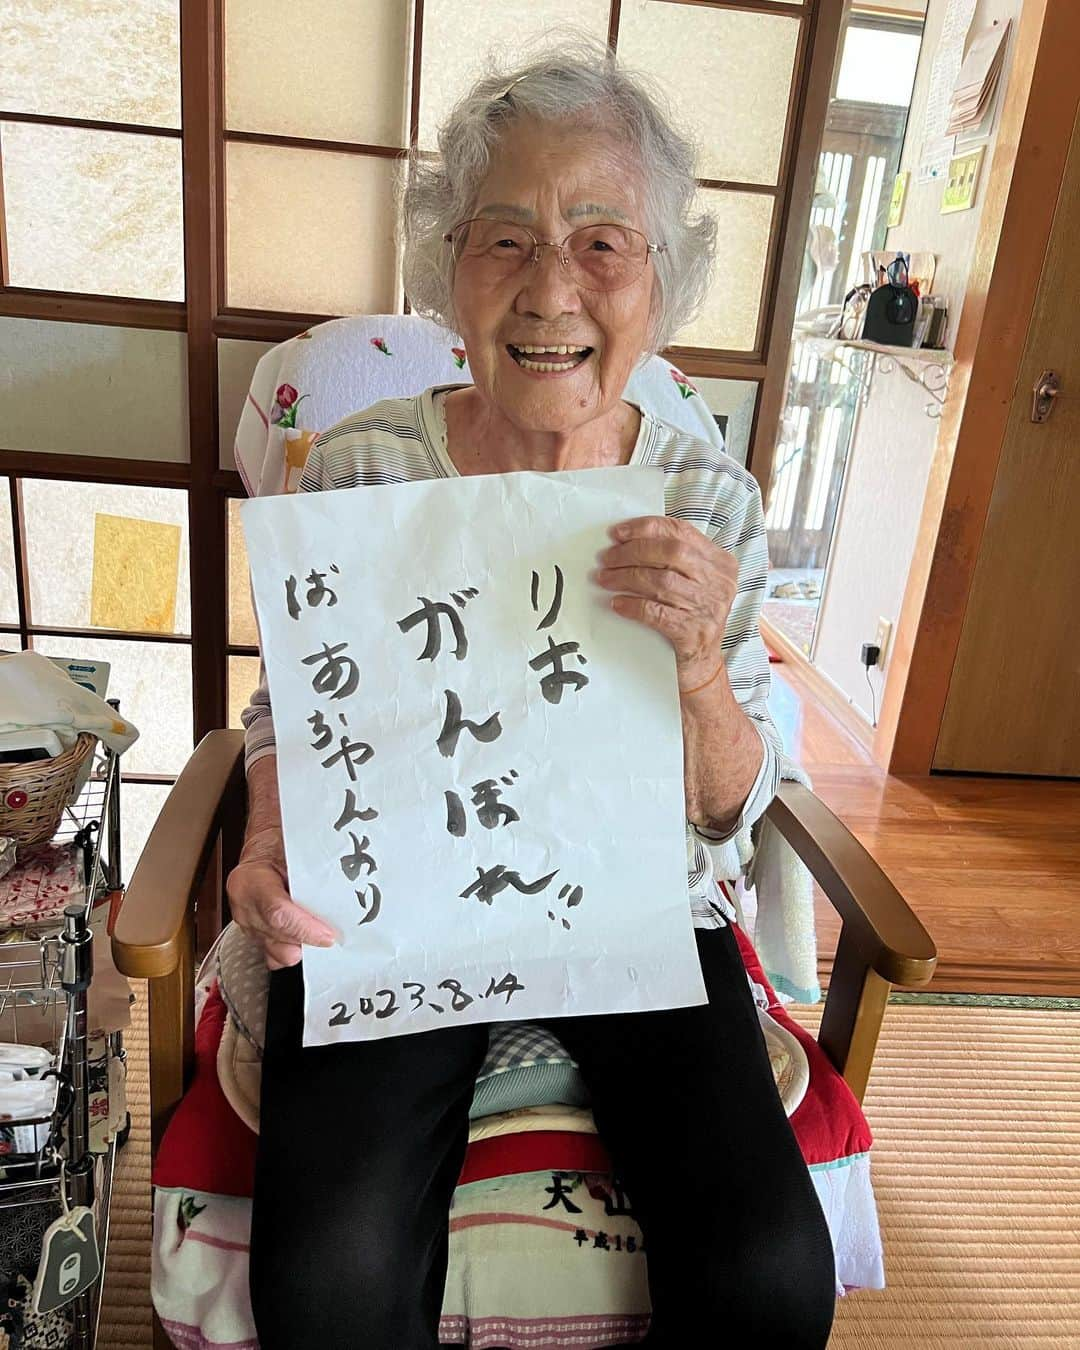 りお
がんばれ!!
ばあちゃんより
2023.8.14
大
平成15